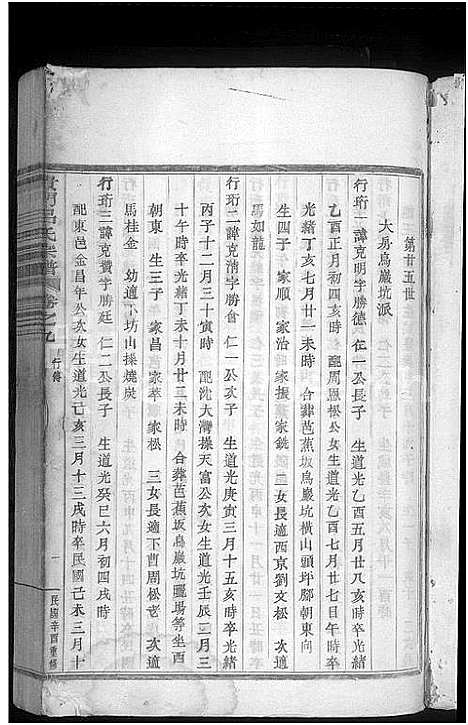 第廿五世
大房鳥巖坑派
行珩一諱克明字勝德 仁一公長子 生道光乙酉五月廿八亥時卒光緒
乙酉正月初四亥時 配周恩松公女生道光乙酉七月廿七日午時卒
光緒丁亥七月廿一未時 合葬芭蕉坂鳥巖坑橫山頭坪腳朝東向
生四子 家順 家治 家振 家銑 四女長適西京劉文松 次適
馬如龍
行珩二諱克清字勝會 仁一公次子 生道光庚寅三月十五亥時卒光緒
丙子十二月三十寅時 配沈大灣操天富公次女生道光壬辰二月三
十午時卒光緒丁未十月廿三未時 合葬芭蕉坂鳥巖坑 場等坐西
朝東 生三子 家昌 家萃 家松 三女長適下曹周松老 次適
馬桂金 幼適下坊山操燒炭
行珩三諱克贊字勝廷 仁二公長子 生道光癸巳六月初四戌時
配東邑金昌年公次女生道光己亥三月十三戌時卒民國己未三月十
呂氏宗譜 卷之九 行傳 一 民國辛酉重修